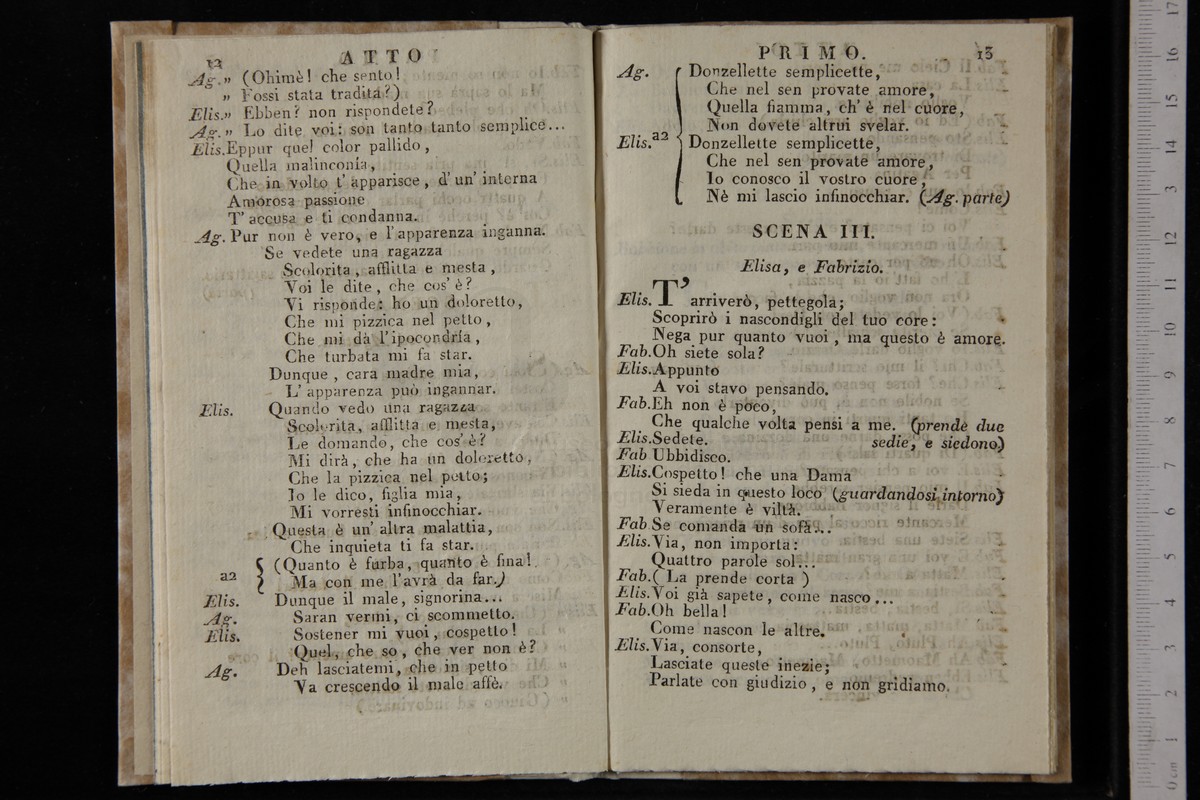 12
ATTO
Ag. „ (Ohimè! che sento!
„ Fossi stata tradita?)
Elis.„ Ebben? non rispondete?
Ag. „ Lo dite voi: son tanto tanto semplice...
Elis. Eppur quel color pallido,
Quella malinconia,
Che in volto t' apparisce, d' un' interna
Amorosa passione
T' accusa e ti condanna.
Ag. Pur non è vero, e l'apparenza inganna.
Se vedete una ragazza
Scolorita, afflitta e mesta,
Voi le dite, che cos' è?
Vi risponde: ho un doloretto,
Che mi pizzica nel petto,
Che mi dà l'ipocondria,
Che turbata mi fa star.
Dunque, cara madre mia,
L' apparenza può ingannar.
Elis. Quando vedo una ragazza
Scolorita, afflitta e mesta,
Le domando, che cos' è?
Mi dirà, che ha un doloretto,
Che la pizzica nel petto;
Io le dico, figlia mia,
Mi vorresti infinocchiar.
Questa è un' altra malattia,
Che inquieta ti fa star.
a2 { (Quanto è furba, quanto è fina!
Ma con me l'avrà da far.)
Elis. Dunque il male, signorina...
Ag. Saran vermi, ci scommetto.
Elis. Sostener mi vuoi, cospetto!
Quel, che so, che ver non è?
Ag. Deh lasciatemi, che in petto
Va crescendo il male affè.
PRIMO.
13
Ag. { Donzellette semplicette,
Che nel sen provate amore,
Quella fiamma, ch' è nel cuore,
Non dovete altrui svelar.
Elis. a2 { Donzellette semplicette,
Che nel sen provate amore,
Io conosco il vostro cuore,
Nè mi lascio infinocchiar. (Ag. parte)
SCENA III.
Elisa, e Fabrizio.
Elis. T' arriverò, pettegola;
Scoprirò i nascondigli del tuo core:
Nega pur quanto vuoi, ma questo è amore.
Fab. Oh siete sola?
Elis. Appunto
A voi stavo pensando.
Fab. Eh non è poco,
Che qualche volta pensi a me. (prende due
Elis. Sedete. sedie, e siedono)
Fab Ubbidisco.
Elis. Cospetto! che una Dama
Si sieda in questo loco (guardandosi intorno)
Veramente è viltà.
Fab Se comanda un sofà...
Elis. Via, non importa:
Quattro parole sol...
Fab. ( La prende corta )
Elis. Voi già sapete, come nasco...
Fab. Oh bella!
Come nascon le altre.
Elis. Via, consorte,
Lasciate queste inezie;
Parlate con giudizio, e non gridiamo.